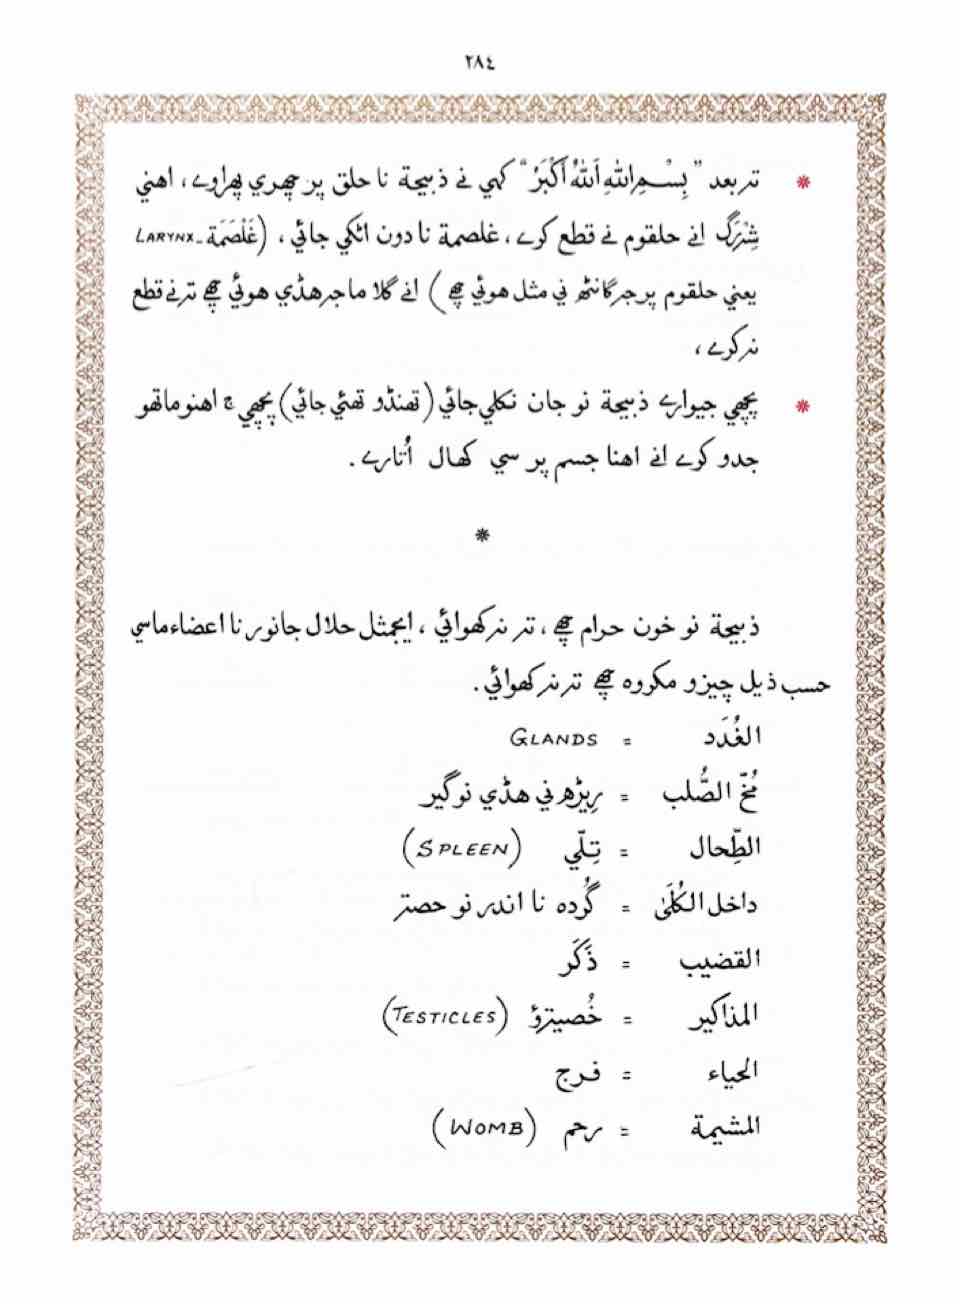 ٢٨٤
* تہ بعد "بِسْمِ اللهِ اَللهُ أَكْبَرُ" كہي نے ذبيحة نا حلق پر چھري پھراوے، اهني
شِہْرَگ انے حلقوم نے قطع كرے، غلصمة نا دون اٹكي جائي، (غَلْصَمَة-LARYNX
يعني حلقوم پر جہ گانٹھ ني مثل هوئي چھے) انے گلا ما جہ هڈي هوئي چھے تہ نے قطع
نہ كرے،
* پچھي جيوارے ذبيحة نو جان نكلي جائي (تھنڈو تھئي جائي) پچھي ج اهنو ماتھو
جدو كرے انے اهنا جسم پر سي كھال اُتارے.
*
ذبيحة نو خون حرام چھے، تہ نہ كھوائي، ايجمثل حلال جانور نا اعضاء ماسي
حسب ذيل چيزو مكروه چھے تہ نہ كھوائي.
الغُدَد = GLANDS
مُخّ الصُّلب = رِيڑھ ني هڈي نو گير
الطِّحال = تِلّي (SPLEEN)
داخل الكُلَىٰ = گُرده نا اندر نو حصہ
القضيب = ذَكَر
المذاكير = خُصيتہؤ (TESTICLES)
الحياء = فرج
المشيمة = رحم (WOMB)